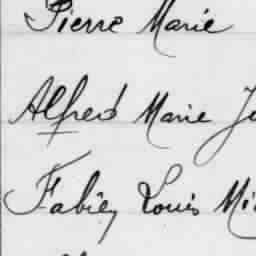 Pierre Marie
Alfred Marie
Fabien Louis